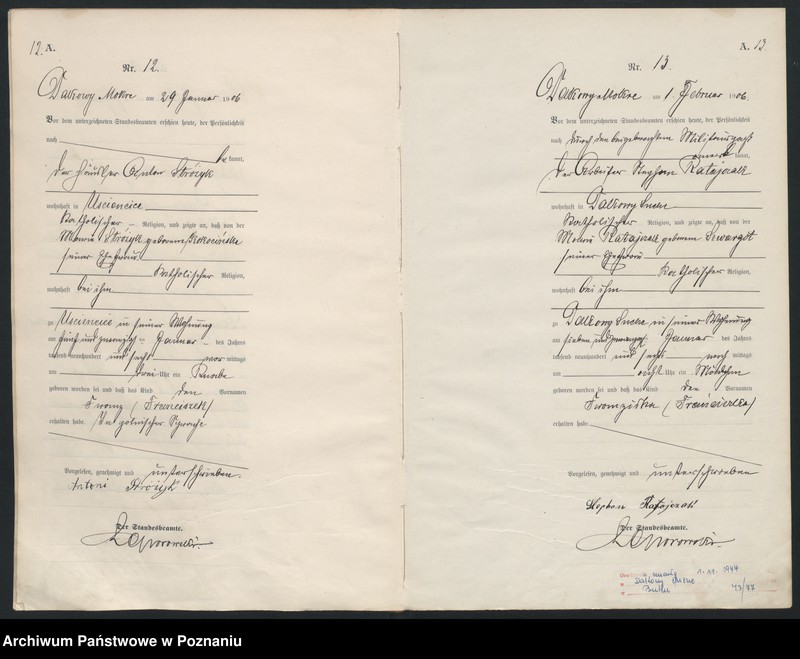 12. A.
Nr. 12.
Dalkowy Mokre am 29 Januar 1906
Vor dem unterzeichneten Standesbeamten erschien heute, der Persönlichkeit
nach
kannt,
der Häusler Anton Stróżyk
wohnhaft in Uscienciee
Katholischer Religion, und zeigte an, daß von der
Maria Stróżyk geborene
seiner Ehefrau
Katholischer Religion,
wohnhaft bei ihm
zu Uscienciee in seiner Wohnung
am fünf und zwanzigsten Januar des Jahres
tausend neunhundert und sechs vor mittags
um drei Uhr ein Knabe
geboren worden sei und daß das Kind den Vornamen
Franz (Franciszek)
erhalten habe. In polnischer Sprache
Vorgelesen, genehmigt und unterschrieben.
Antoni Stróżyk
Der Standesbeamte.
A. 13
Nr. 13.
Dalkowy Mokre am 1. Februar 1906.
Vor dem unterzeichneten Standesbeamten erschien heute, der Persönlichkeit
nach durch den beigebrachten Militairpaß
anerkannt,
der Arbeiter Stephan Ratajczak
wohnhaft in Dalkowy Suche
Katholischer Religion, und zeigte an, daß von der
Maria Ratajczak geborene Szwargot
seiner Ehefrau
Katholischer Religion,
wohnhaft bei ihm
zu Dalkowy Suche in seiner Wohnung
am sieben und zwanzigst. Januar des Jahres
tausend neunhundert und sechs nach mittags
um acht Uhr ein Mädchen
geboren worden sei und daß das Kind den Vornamen
Franziska (Franciszka)
erhalten habe.
Vorgelesen, genehmigt und unterschrieben
Stephan Ratajczak
Der Standesbeamte.
1.11.1944
73/77
Archiwum Państwowe w Poznaniu